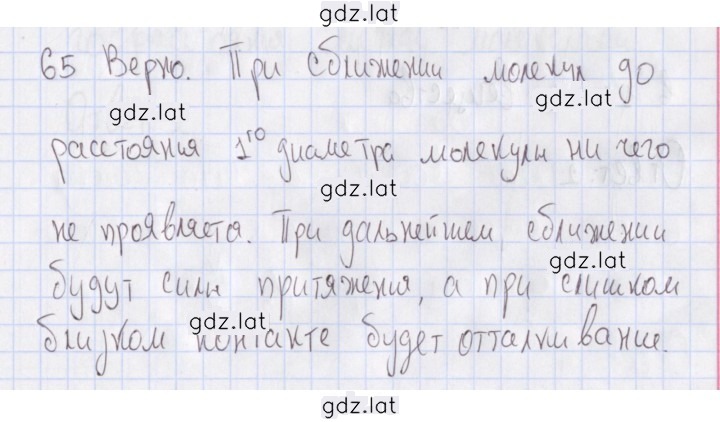 gdz.lat
65 Верно. При сближении молекул до
gdz.lat gdz.lat
расстояния 1го диаметра молекулы ни чего
gdz.lat
не проявляета. При дальнейшем сближении
gdz.lat
будут силы притяжения, а при слишком
gdz.lat
близком контакте будет отталкивание.
gdz.lat